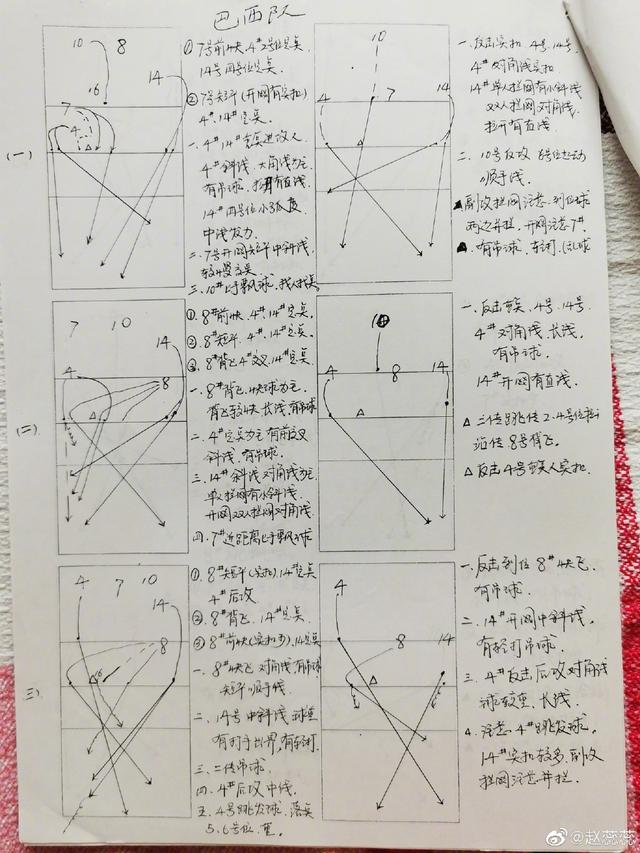 巴西队
(一)
10 8
16
14
7
4
① 7号前快.4#2号位定点.
14号四号位定点.
② 7号短平(开网有实扣)
4#.14#定点.
一. 4#.14#定点进攻人
4#斜线.大角线为主
有吊球.拉开有直线.
14#四号位小弧度
中线发力.
二. 7号开网短平中斜线.
三. 10#上手飘球.找人找点
10
4
14
一.反击实扣 4号.14号.
4#对角线实扣
14#单人拦网有小斜线
双人拦网对角线.
拉开有直线.
二. 10号后攻 6号位起动
顺手线.
副攻拦网注意.到位球
两边并拦.开网注意7#.
有吊球.轻打.
(二).
7 10
14
4
8
① 8#前快.4#.14#定点.
② 8#短平.4#.14#定点.
③ 8#背飞4#交叉.14#定点
一. 8#背飞.快球为主.
背飞较快.长线.有吊球
二. 4#定点为主有前交叉
斜线.有吊球.
三. 14#斜线.对角线为主
单人拦网有小斜线.
开网双人拦网对角线.
四. 7#近距离上手飘球
4
8
14
一.反击 4号.14号.
4#对角线.长线.
有吊球.
14#开网有直线.
△ 二传跳传 2.4号位拉开
近传8号背飞.
△ 反击4号 人实扣.
三)
4 7 10
14
8
16
① 8#短平(实扣).14#定点
4#后攻
② 8#背飞.14#定点.
③ 8#前快(实扣多).14号定点
一. 8#快飞.对角线.有吊球
短平顺手线.
二. 14号中斜线.球重
有打手出界.有轻打.
三.二传吊球.
四. 4#后攻中线.
五. 4号跳发球.落点
5.6号位.重.
4
8
14
一.反击到位8#快飞.
有吊球.
二. 14#开网中斜线.
有轻打吊球.
三. 4#反击后攻对角线
球较重.长线.
4. 注意.4#跳发球.
14#实扣较多.副攻
拦网注意并拦.
@赵蕊蕊